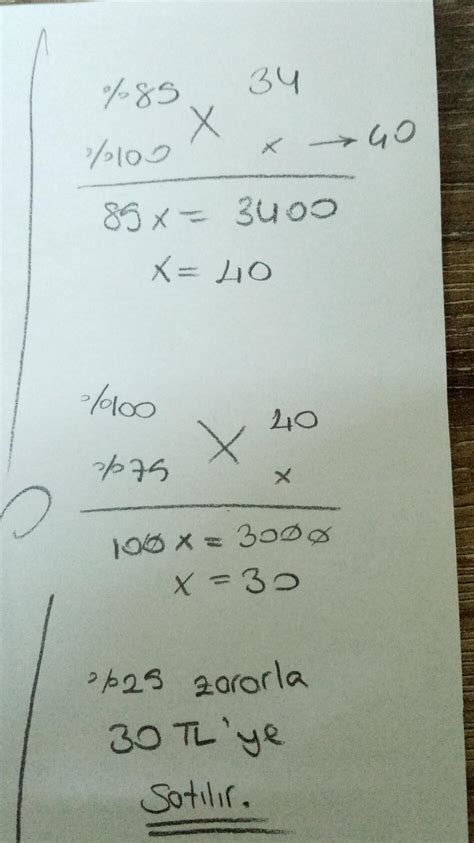 %85 X 34
%100 x → 40
85x = 3400
x = 40
%100 X 40
%75 x
100x = 3000
x = 30
%25 zararla
30 TL'ye
Satılır.